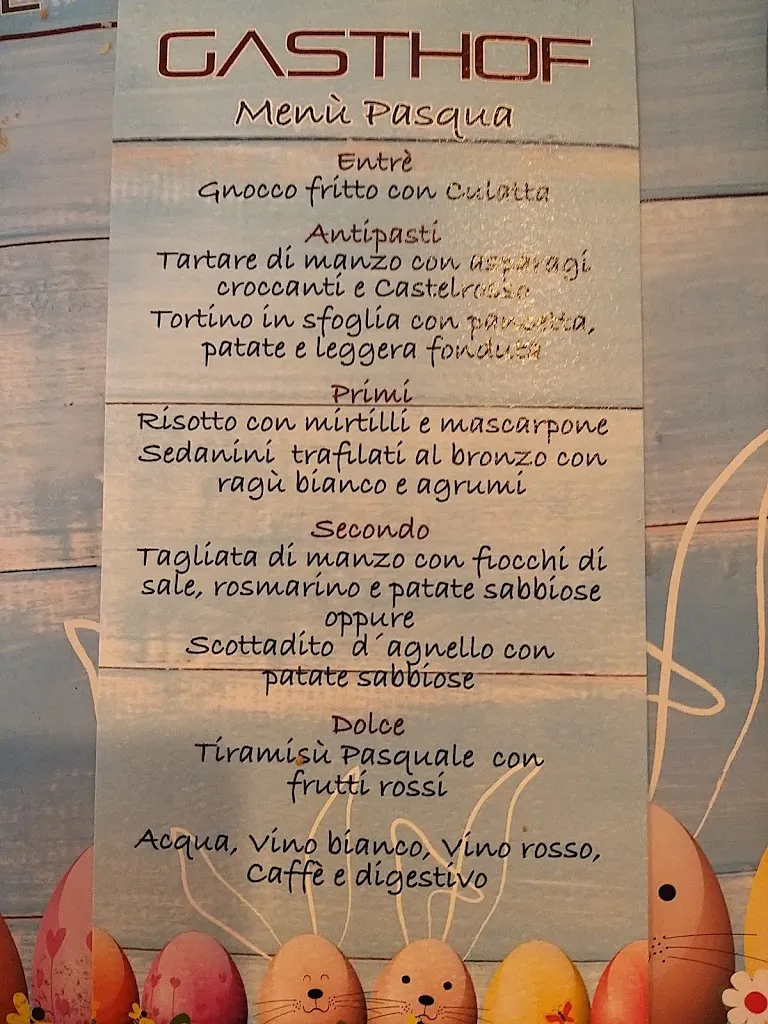 GASTHOF
Menù Pasqua
Entrè
Gnocco fritto con Culatta
Antipasti
Tartare di manzo con asparagi
croccanti e Castelrosso
Tortino in sfoglia con pancetta,
patate e leggera fonduta
Primi
Risotto con mirtilli e mascarpone
Sedanini trafilati al bronzo con
ragù bianco e agrumi
Secondo
Tagliata di manzo con fiocchi di
sale, rosmarino e patate sabbiose
oppure
Scottadito d´agnello con
patate sabbiose
Dolce
Tiramisù Pasquale con
frutti rossi
Acqua, Vino bianco, Vino rosso,
Caffè e digestivo